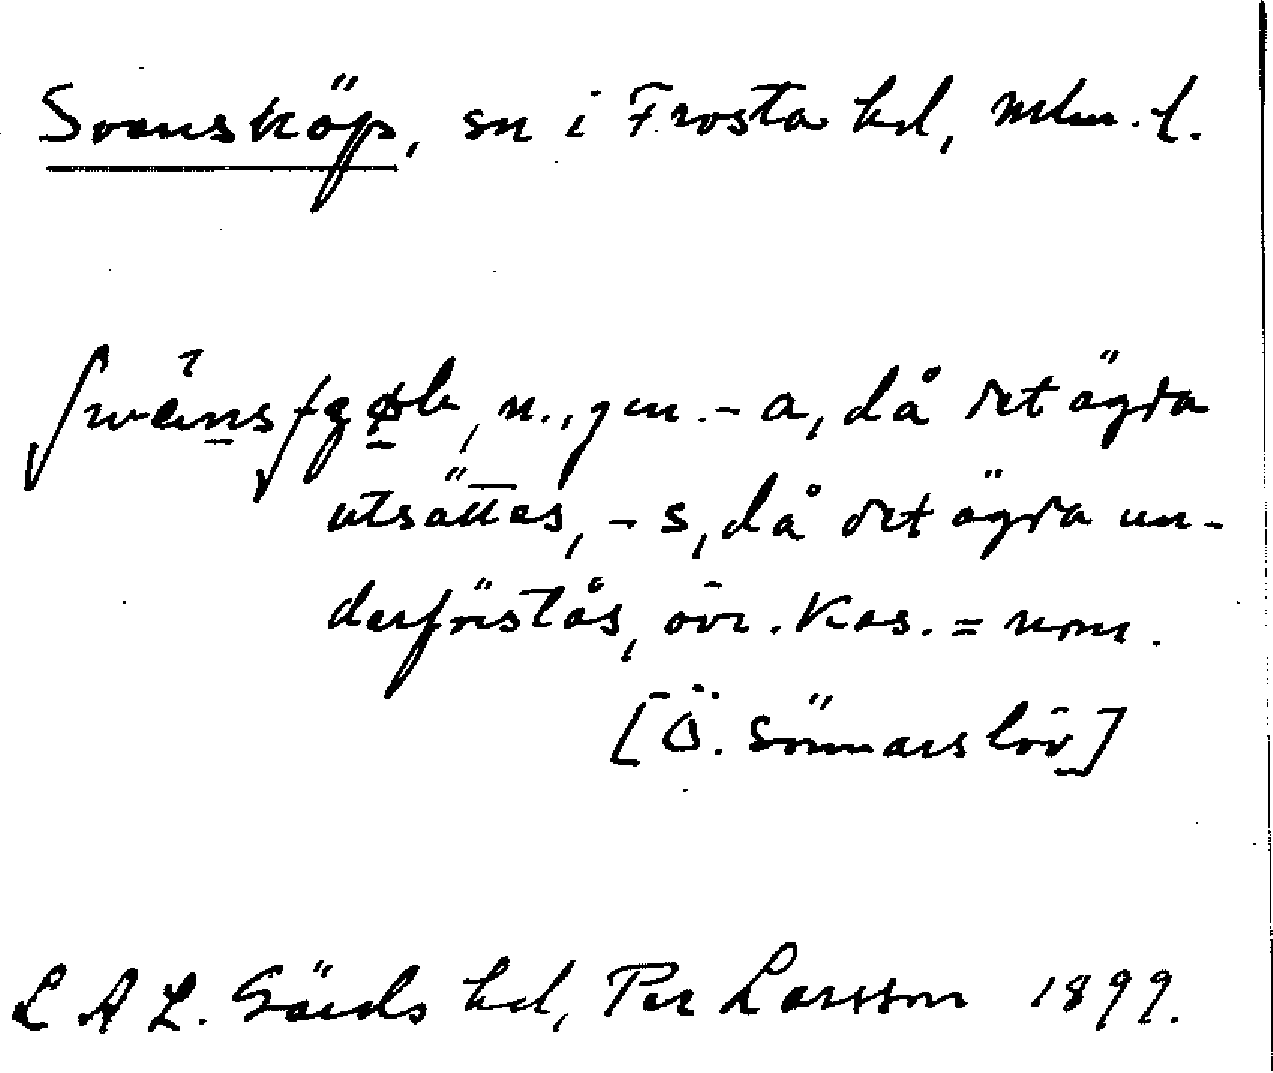 Svensköp, sn i Frosta hd, Mlm. l.
n., gen. - a, då det ägda
utsättes, - s, då det ägda un-
derförstås, övr. Kas. = nom.
[Ö. Sönnarslöv]
L A L. Gärds hd, Per Larsson 1899.